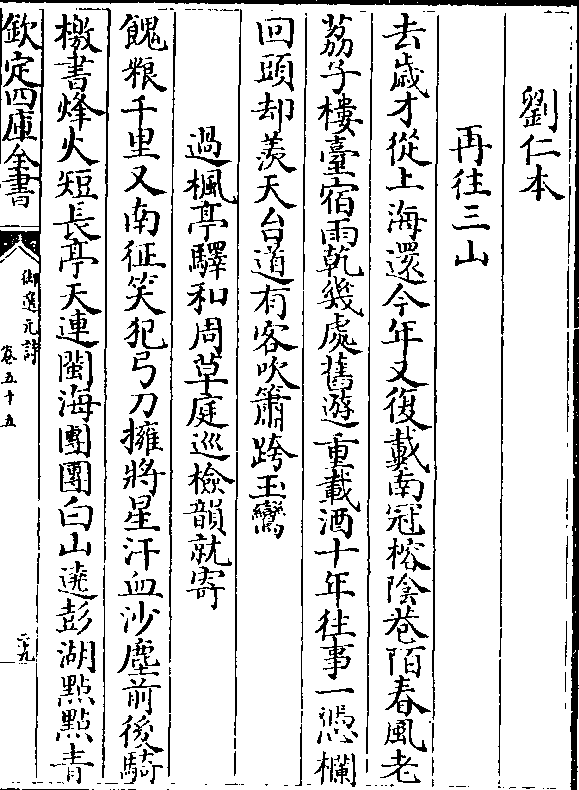 劉仁本
再往三山
去歲才從上海還今年又復戴南冠榕陰巷陌春風老
荔子樓臺宿雨乾幾處舊遊重載酒十年往事一憑欄
回頭却羨天台道有客吹簫跨玉鸞
過楓亭驛和周草庭巡檢韻就寄
餽粮千里又南征笑犯弓刀擁將星汗血沙塵前後騎
檄書烽火短長亭天連閩海團團白山遶彭湖點點青
欽定四庫全書
御選元詩
卷五十五
二十九